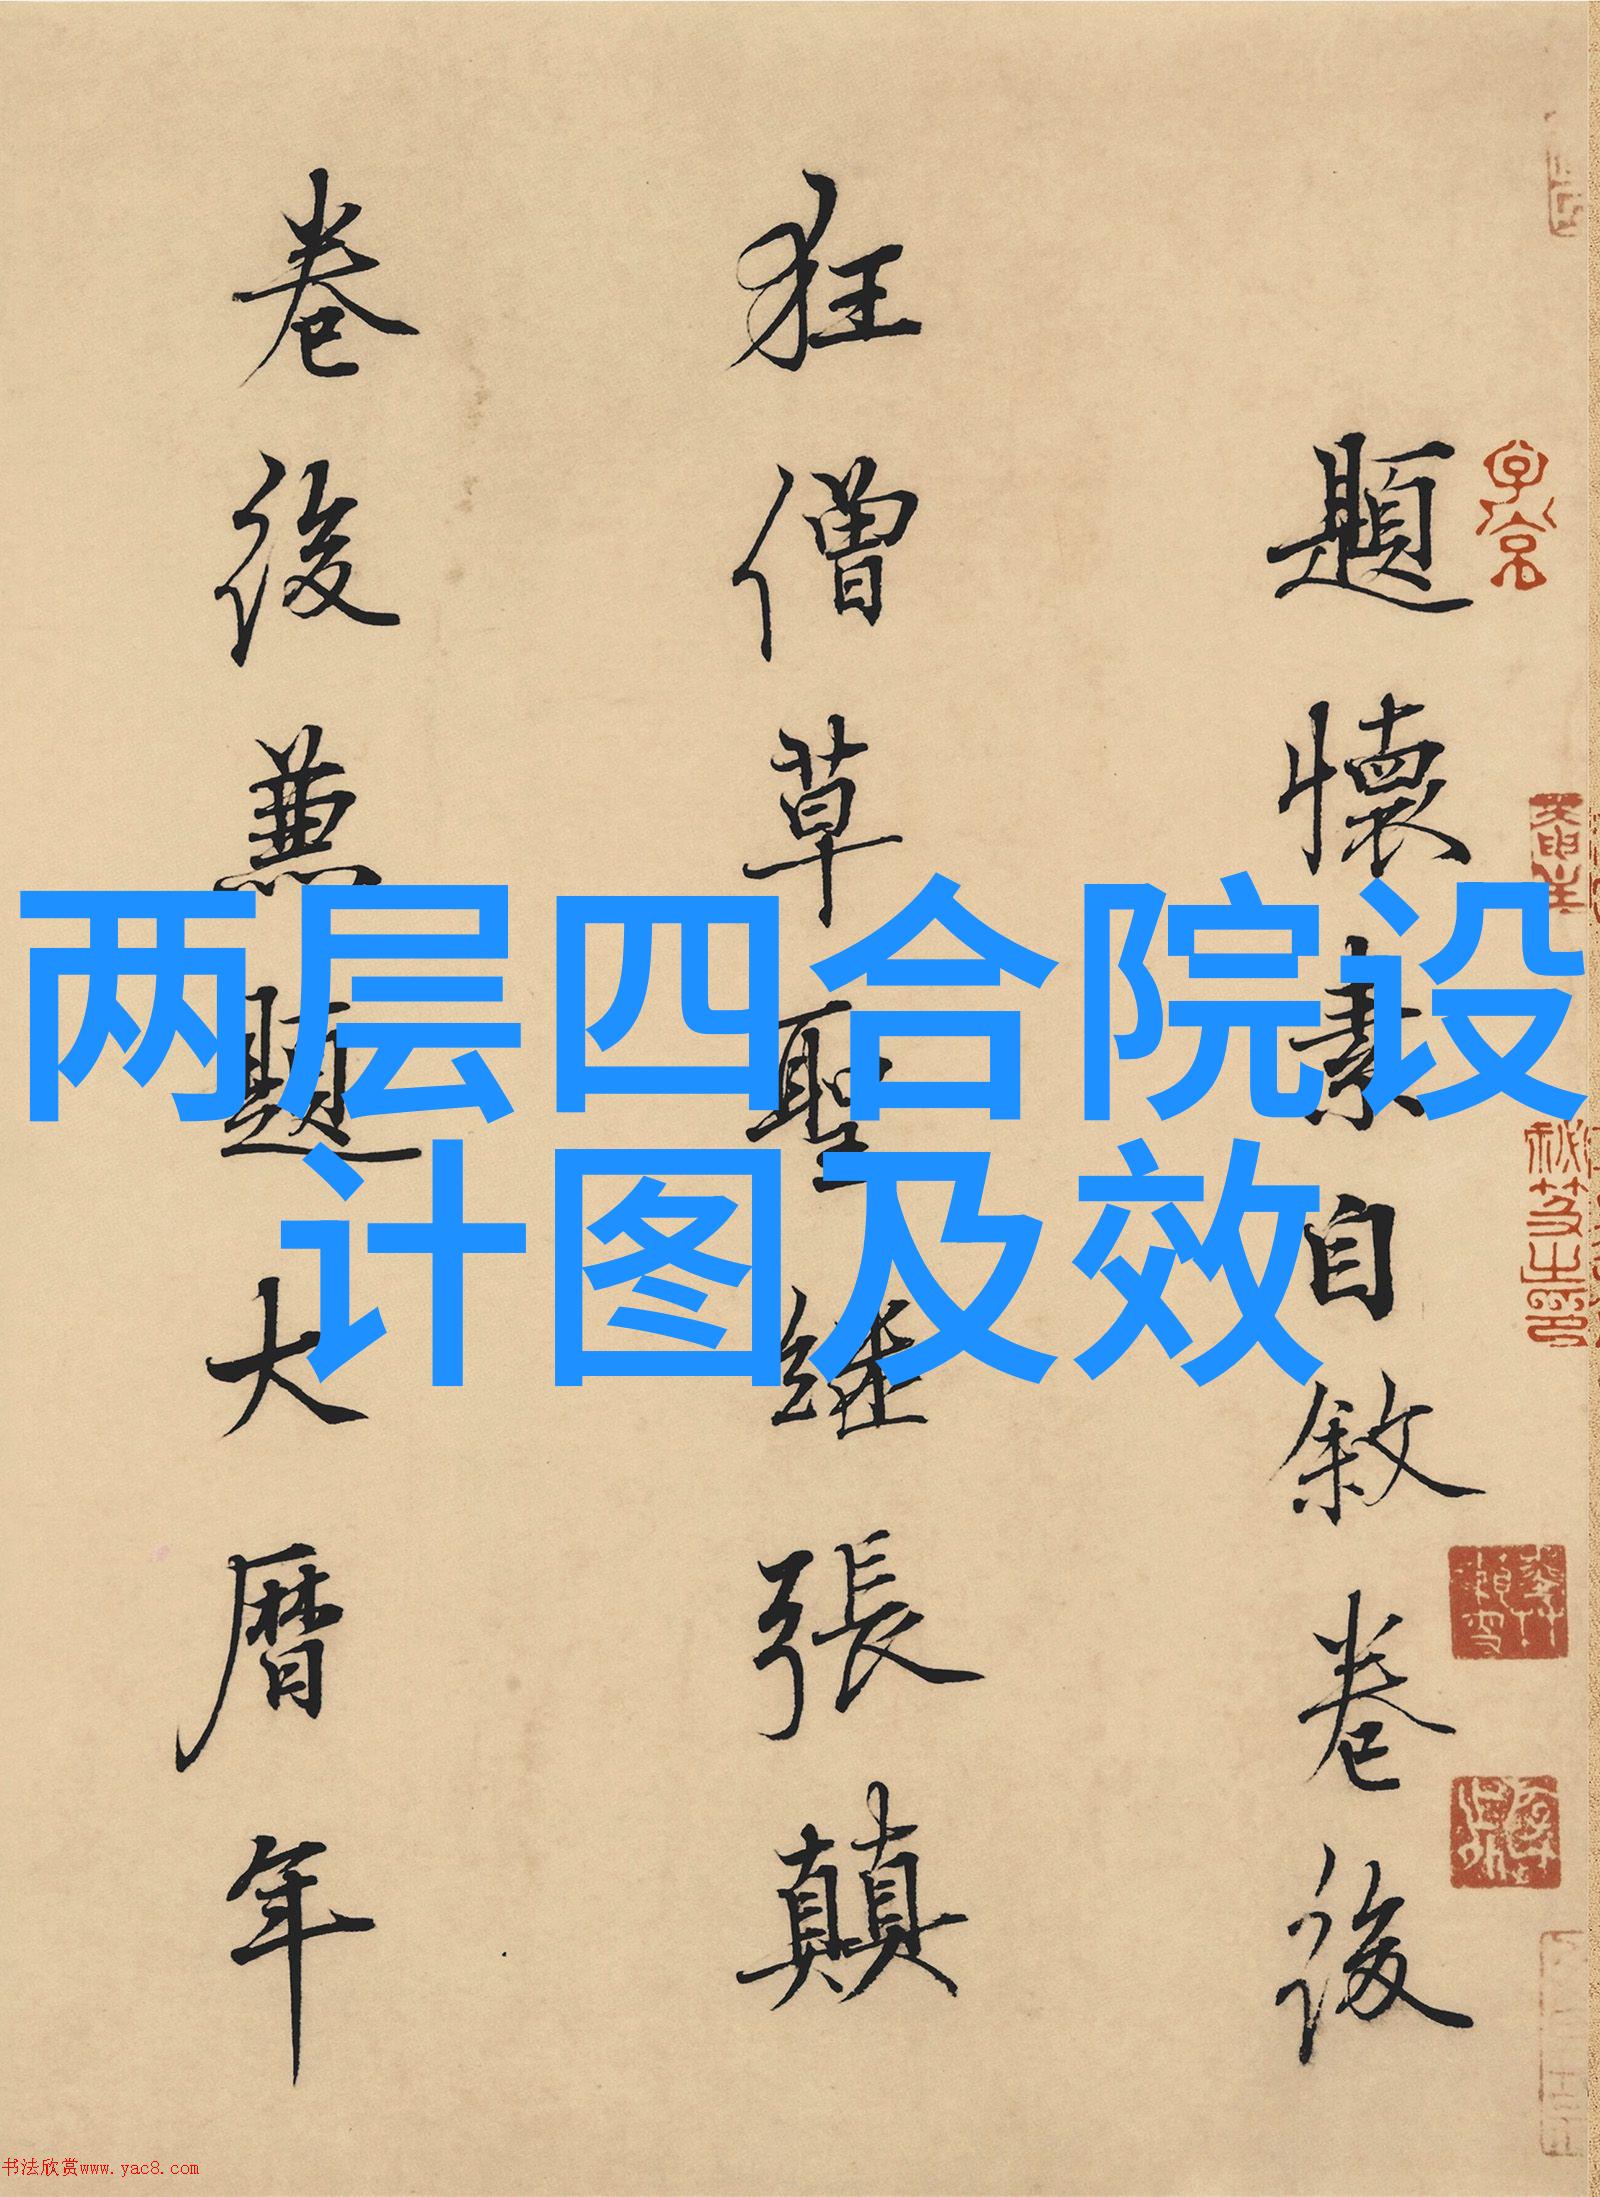 两层四合院设
计图及效
題懷素自敘卷後
狂僧草聖继張顛
卷後兼題大曆年
书法欣赏www.yac8.com